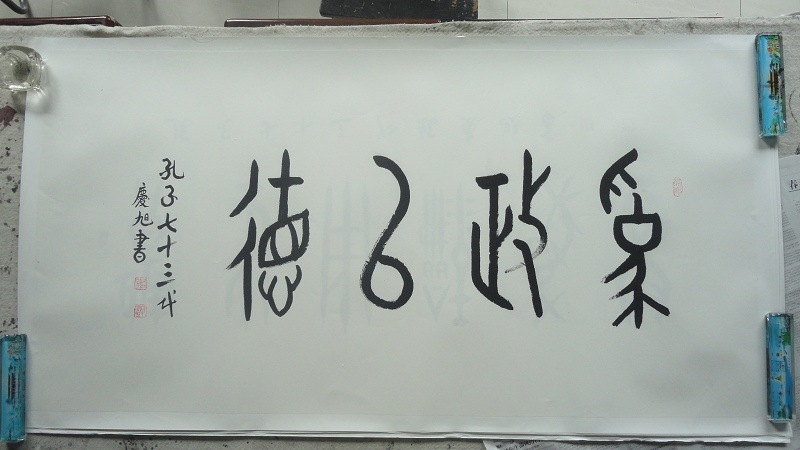 爲政㠯德
孔子七十三代
慶旭書